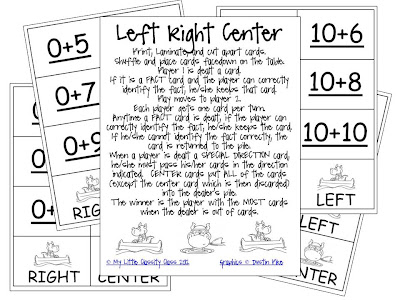 Left Right Center
Print, Laminate, and cut apart cards.
Shuffle and place cards facedown on the table.
Player 1 is dealt a card.
If it is a FACT card and the player can correctly
identify the fact, he/she keeps that card.
Play moves to player 2.
Each player gets one card per turn.
Anytime a FACT card is dealt, if the player can
correctly identify the fact, he/she keeps the card.
If he/she cannot identify the fact correctly, the
card is returned to the pile.
When a player is dealt a SPECIAL DIRECTION card,
he/she must pass his/her cards in the direction
indicated. CENTER cards put ALL of the cards
(except the center card which is then discarded)
into the dealer's pile.
The winner is the player with the MOST cards
when the dealer is out of cards.
© My Little Classity Class 2012 Graphics © Dustin Pike
0+5
0+7
0+9
RIGHT
CENTER
10+6
10+8
10+10
LEFT